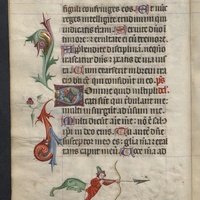 figuli confringes eos. Et nūc
reges intelligite erudimini qui
iudicatis terram. Seruite dnō ī
timore: et exultate ei cū tremore.
Apprehendite disciplinā: neqn̄
irascatur dn̄s: et de via ius
Cum exarserit in breui ira
eius: qui confidunt in eo. ps
Domine quid multipli
cati sūt qui tribulant me:
multi insurgunt aduersum me.
Multi dicūt aīe mee: nō ē salꝰ
ipi in deo eius. Tu autē dn̄e
susceptor meus es: gl̄ia mea et ex
altans caput meū. Voce mea ad